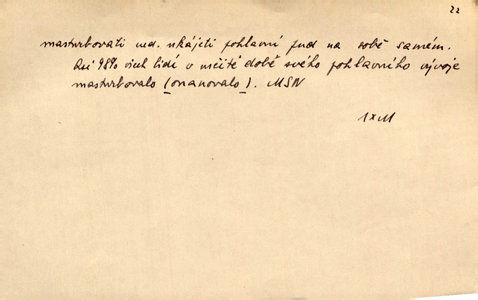 22
masturbovati ned. ukájeti pohlavní pud na sobě samém.
98% všech lidí v určité době svého pohlavního vývoje
masturbovalo (onanovalo). MSN
1xM